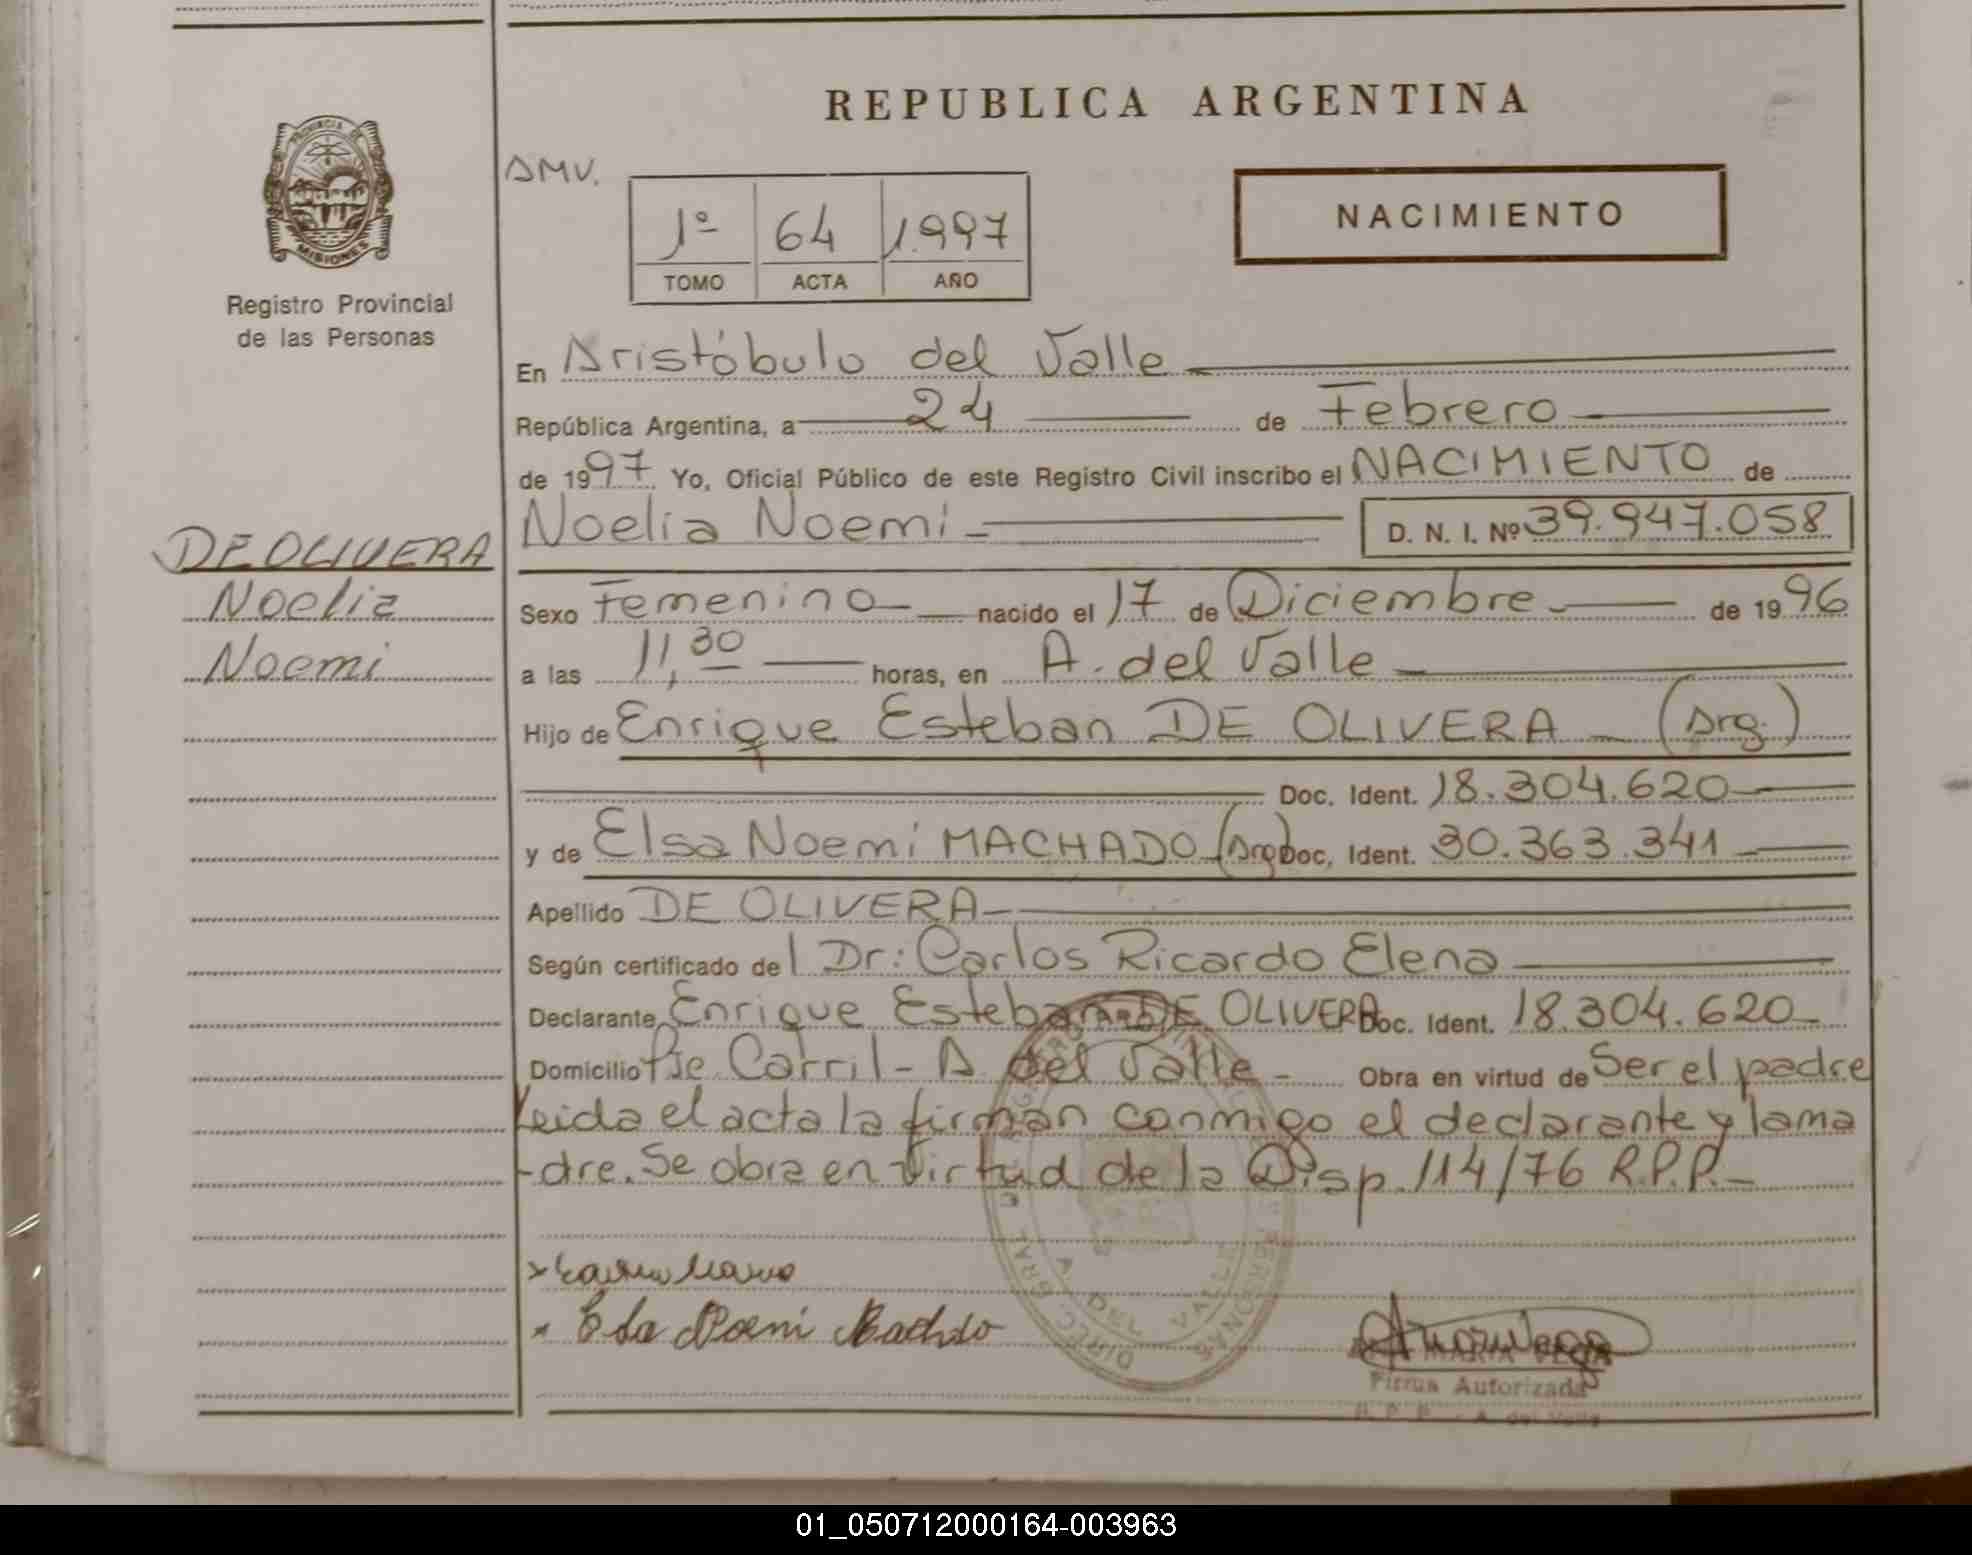 REPUBLICA ARGENTINA
PROVINCIA DE MISIONES
Registro Provincial
de las Personas
AMV.
1º 64 1.997
TOMO ACTA AÑO
NACIMIENTO
En Aristóbulo del Valle
República Argentina, a 24 de Febrero
de 1997. Yo, Oficial Público de este Registro Civil inscribo el NACIMIENTO de
Noelia Noemi D. N. I. Nº 39.947.058
DE OLIVERA
Noelia
Noemi
Sexo Femenino nacido el 17 de Diciembre de 1996
a las 11,30 horas, en A. del Valle
Hijo de Enrique Esteban DE OLIVERA (Arg.)
Doc. Ident. 18.304.620
y de Elsa Noemi MACHADO (Arg) Doc. Ident. 30.363.341
Apellido DE OLIVERA
Según certificado del Dr: Carlos Ricardo Elena
Declarante Enrique Esteban DE OLIVERA Doc. Ident. 18.304.620
Domicilio Pje Carril - A. del Valle - Obra en virtud de Ser el padre
Leida el acta la firman conmigo el declarante y la ma
-dre. Se obra en virtud de la Disp. 114/76 R.P.P.-
Elsa Noemi Machado
A. DEL VALLE
MARIA VEGA
Firma Autorizada
R. P. P. - A. del Valle
01_050712000164-003963